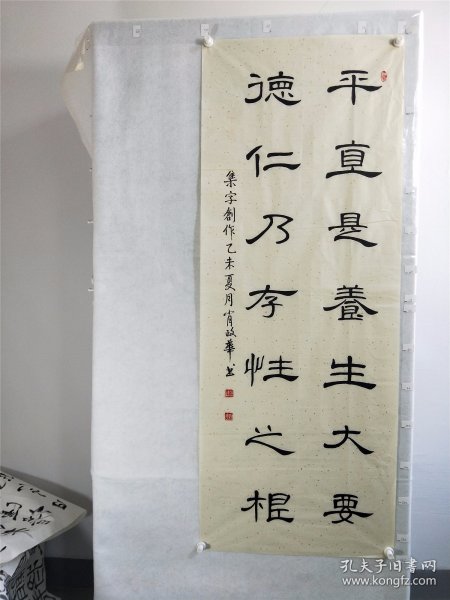 平直是養生大要
德仁乃存性之根
集字創作乙未夏月肖政華书
孔夫子旧书网
www.kongfz.com